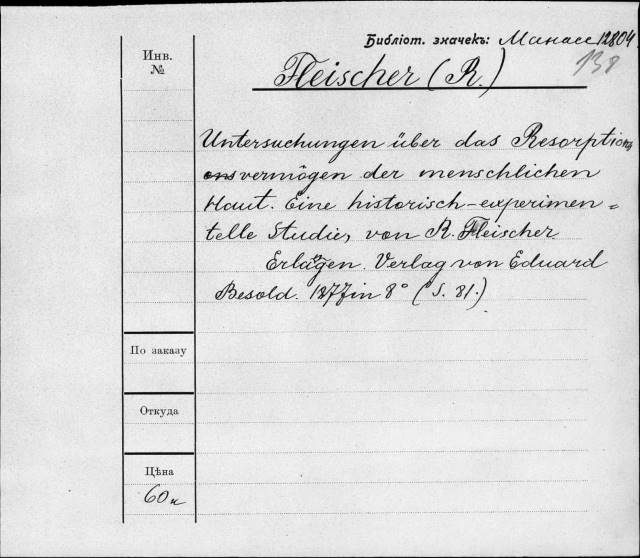 Библіот. значекъ: Манасс 12804
Инв.
№
138
Fleischer (R.)
Untersuchungen über das Resorpti
vermögen der menschlichen
Haut. Eine historisch-experimen=
telle Studie, von R. Fleischer.
Erlangen. Verlag von Eduard
Besold. 1877 in 8° (S. 81.)
По заказу
Откуда
Цѣна
60 к